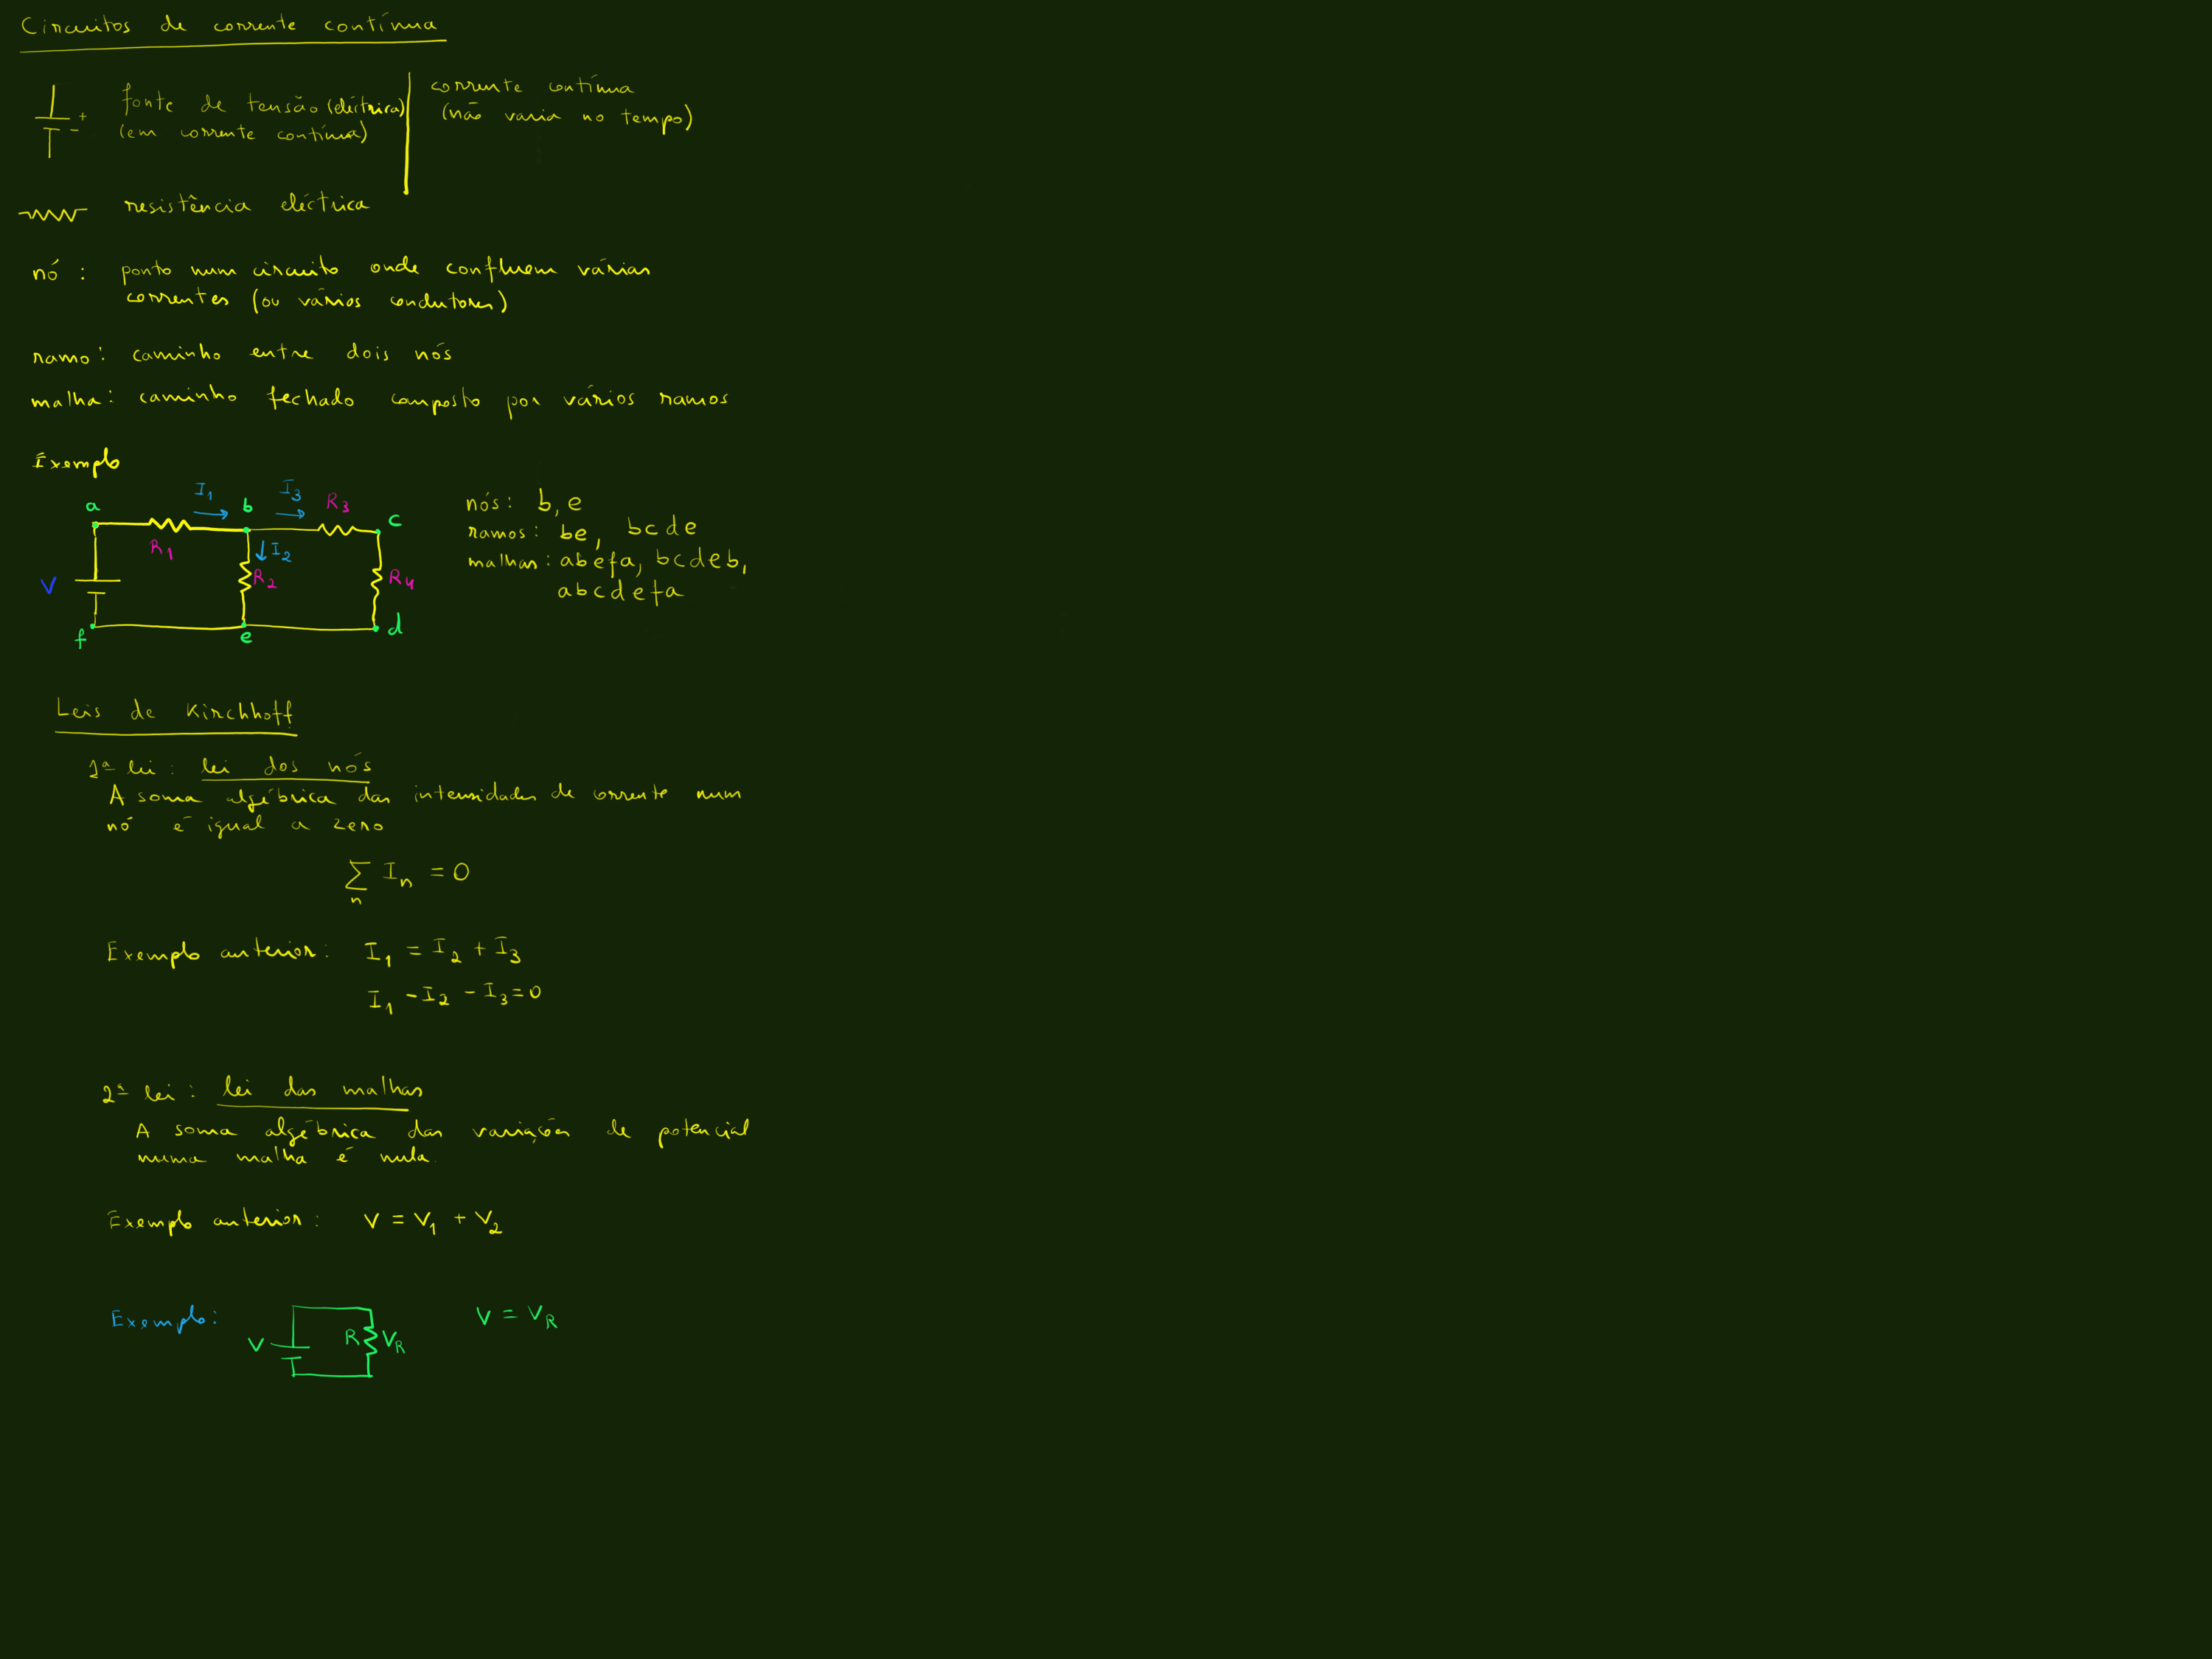 Circuitos de corrente contínua
+
-
fonte de tensão (eléctrica)
(em corrente contínua)
corrente contínua
(não varia no tempo)
resistência eléctrica
nó : ponto num circuito onde confluem várias
correntes (ou vários condutores)
ramo: caminho entre dois nós
malha: caminho fechado composto por vários ramos
Exemplo
a I₁ b I₃ R₃ c
R₁ I₂
V R₂ R₄
f e d
nós: b, e
ramos: be, bcde
malhas: abefa, bcdeb,
abcdefa
Leis de Kirchhoff
1ª lei : lei dos nós
A soma algébrica das intensidades de corrente num
nó é igual a zero
∑ Iₙ = 0
n
Exemplo anterior: I₁ = I₂ + I₃
I₁ - I₂ - I₃ = 0
2ª lei : lei das malhas
A soma algébrica das variações de potencial
numa malha é nula.
Exemplo anterior : V = V₁ + V₂
Exemplo: V R V_R V = V_R